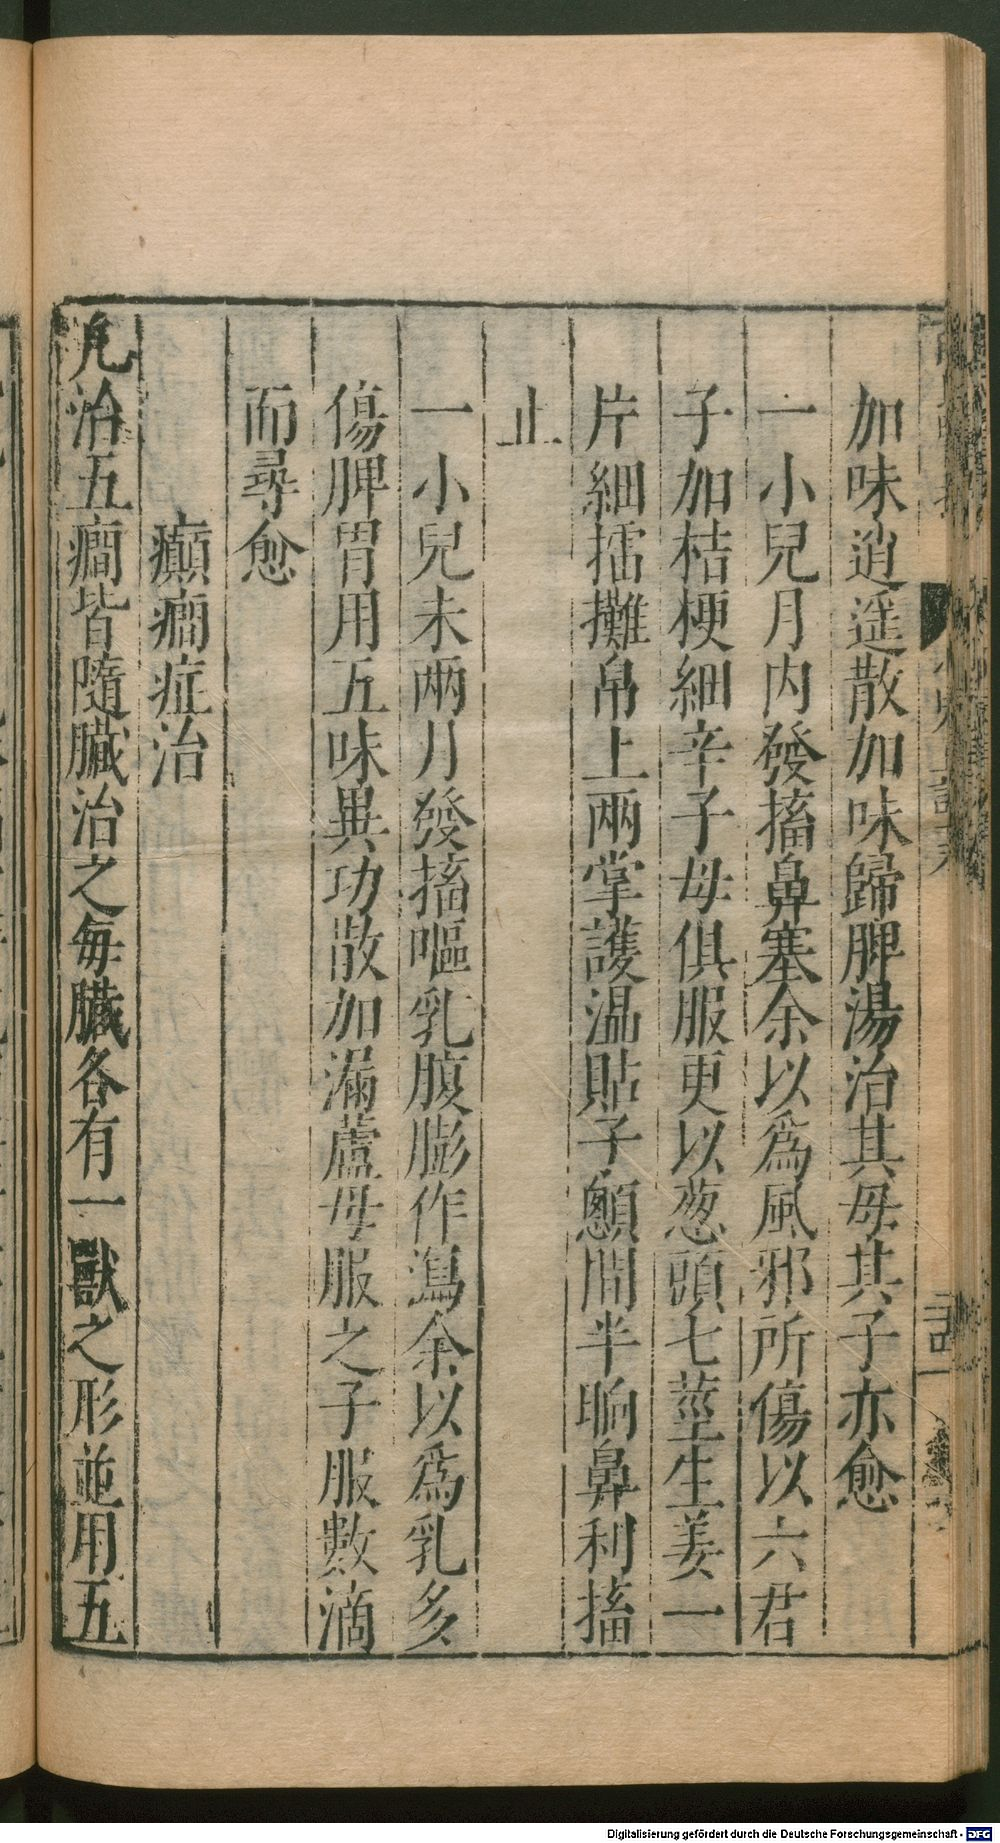 加味逍遥散加味歸脾湯治其母其子亦愈
一小兒月内發搐鼻塞余以爲風邪所傷以六君
子加桔梗細辛子母俱服更以葱頭七莖生姜一
片細擂攤帛上兩掌護温貼子顖間半晌鼻利搐
止
一小兒未兩月發搐嘔乳腹膨作瀉余以爲乳多
傷脾胃用五味異功散加漏蘆母服之子服數滴
而尋愈
癲癇症治
凢治五癇皆隨臟治之每臟各有一獸之形並用五
Digitalisierung gefördert durch die Deutsche Forschungsgemeinschaft - DFG